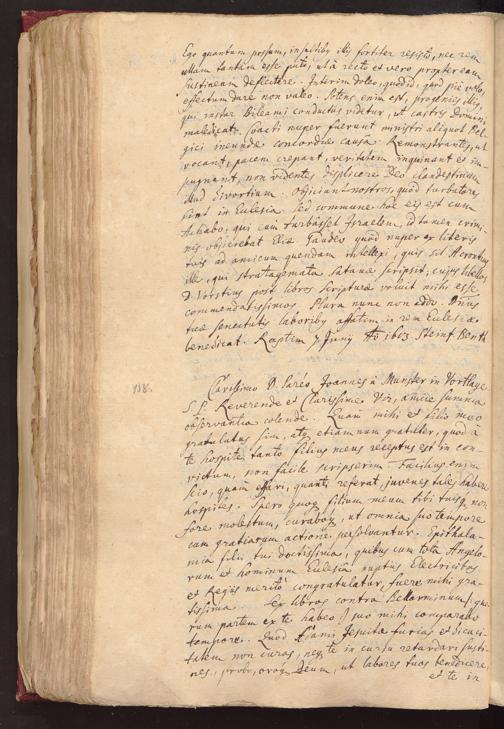 Ego quantum possum, insultibus illis fortiter resisto, nec rem
ullam tanti esse puto, ut à recto et vero propter eam
sustineam deflectere. Interim doleo, quod id, quod pie volo,
effectum dare non valeo. Potens enim est, progenies illa,
qui instar Bileami conductus videtur, ut castris Domini
maledicat. Coacti nuper fuerunt ministri aliquot Bel-
gici ineundæ concordiæ causa. Remonstrantes, ut
vocant, pacem crepant, veritatem inquinant et im-
pugnant, non videntes displicere Deo clandestinum
illud divortium. Objiciunt nostros, quod turbatores
sint in Eclesia. Sed commune hoc eis est cum
Achabo, qui cum turbasset Israelem, id tamen crimi-
nis objiciebat Eliæ. Gaudeo quod nuper ex literis
tuis ad amicum quendam intellexi, quis sit
ille, qui stratagemata Satanæ scripsit; cujus libellos
D. Vorstius post libros scripturæ voluit mihi esse
commendatissimos. Plura nunc non addo. Dominus
tuæ senectutis laboribus affatim in rem Eclesiæ
benedicat. Raptim 7 Junij Ao 1613 Steinf. Benth.
138.
Clarissimo D. Paréo Joannes à Munster in Vortlage
S. P. Reverende et Clarissime Vir, amice summa
observantia colende. Quam mihi et filio meo
gratulatus sim, atque etiamnum gratuler, quod à
te hospite tanto filius meus receptus est in con-
victum, non facile scripserim. Facilius enim
scio, quam effari, quanti referat, juvenes tales habere
hospites. Spero quoque filium meum tibi tuisque non
fore molestum, curaboque, ut omnia suo tempore
cum gratiarum actione persolvantur. Epithala-
mia filii tui doctissima, quibus cum tota Angelo-
rum et hominum Eclesia nuptiis Electricibus
et Regiis meritò congratulatur, fuere mihi gra-
tissima. Sex libros contra Bellarminum (quo-
rum partem ex te habeo) suo mihi comparabo
tempore. Quod Jesuitæ furias et dicaci-
tatem non curas, neque te in cursu retardari susti-
nes, probo, oroque Deum, ut labores tuos benedicere,
et te in